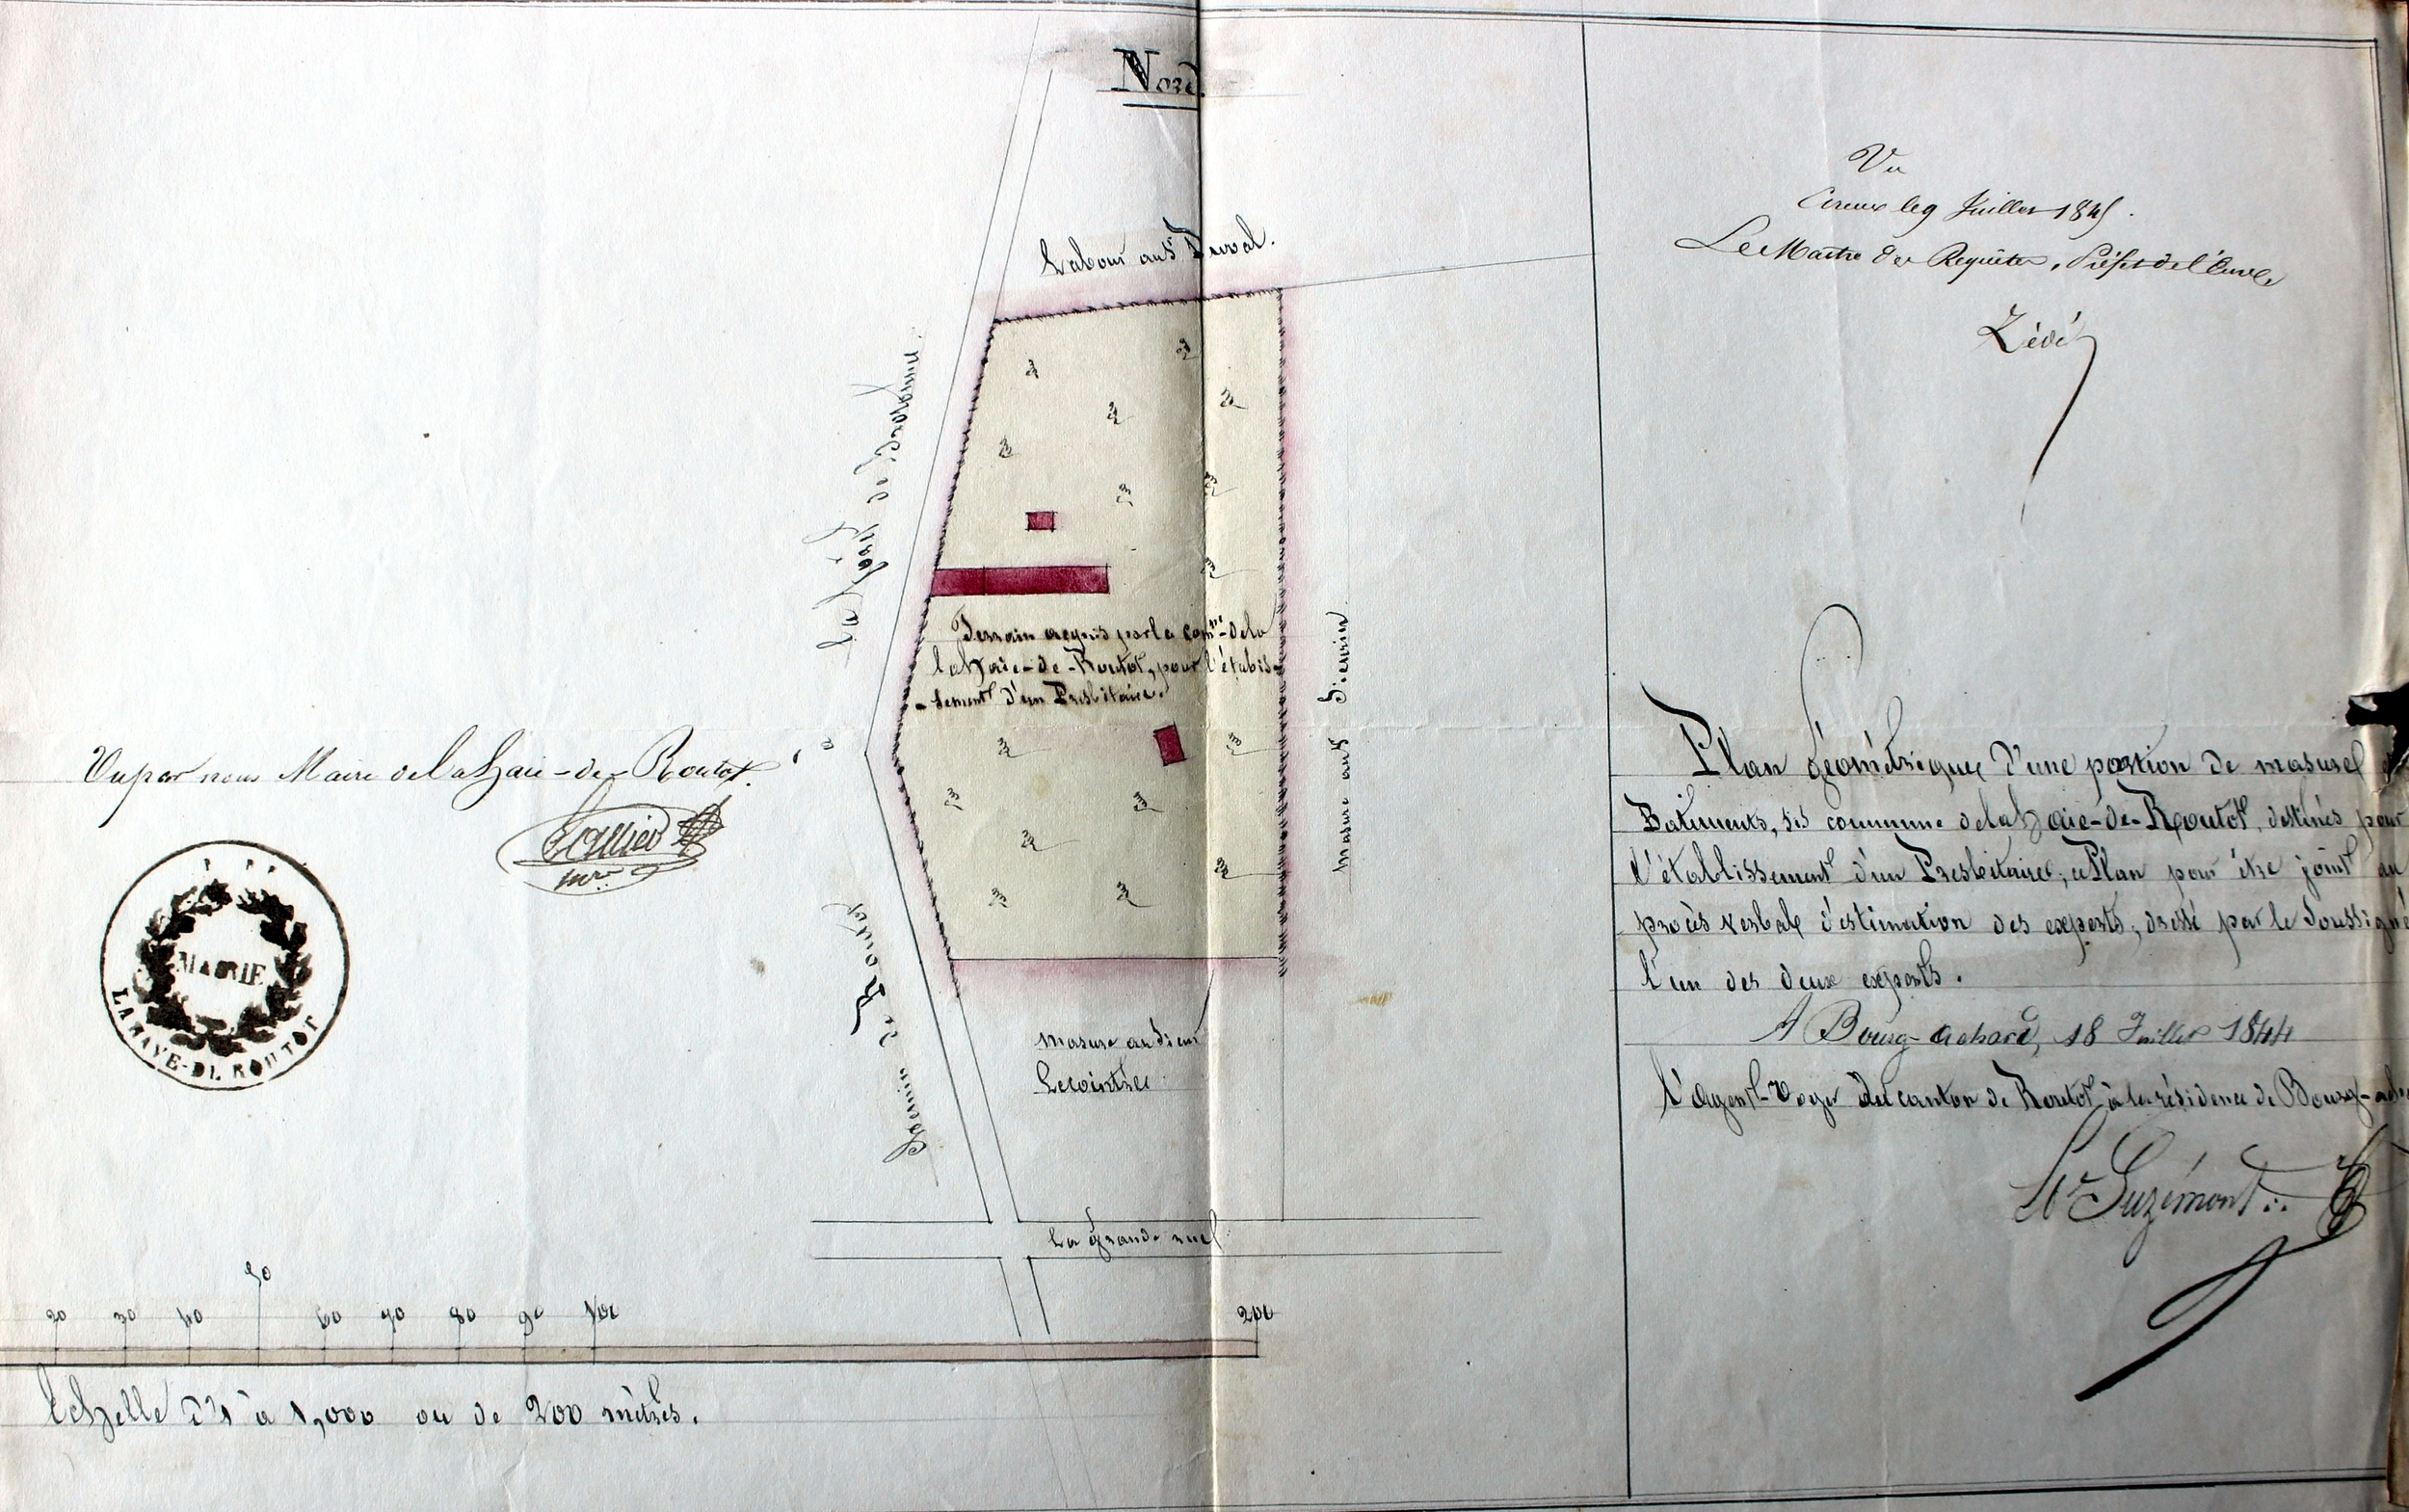 Nord.
Labour au Sr Duval.
La Haye de Brotonne.
à
Chemin de Routot
Terrain acquis par la comne de la
la Haie-de-Routot, pour l'établis-
-sement d'un Presbitaire.
Masure au Sr
Masure au Sieur
Lecointre
La grande rue
Vu par nous Maire de la Haie-de-Routot.
mre
MAIRIE
LA HAYE-DE-ROUTOT
20 30 40 50 60 70 80 90 100 200
Echelle d'1 à 1,000 ou de 200 mètres.
Vu
Evreux le 9 Juillet 1845.
Le Maître des Requêtes, Préfet de l'Eure
Zédé
Plan géométrique d'une portion de masure
Bâtiments, sis commune de la Haie-de-Routot, destinés pour
l'établissement d'un Presbitaire, ce Plan pour être joint au
procès verbal d'estimation des experts, dressé par le Soussigné
l'un des deux experts.
A Bourg-achard, 18 Juillet 1844
l'Agent-Voyer du canton de Routot à la résidence de Bourg-ach